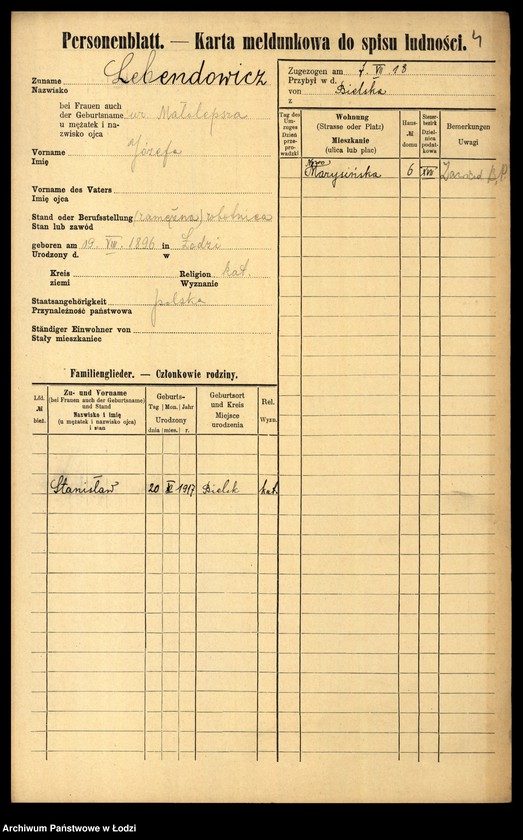 Personenblatt. — Karta meldunkowa do spisu ludności. 4
Zuname Lebendowicz
Nazwisko
bei Frauen auch
der Geburtsname ur. Małolepsza
u mężatek i na-
zwisko ojca
Vorname Józefa
Imię
Vorname des Vaters
Imię ojca
Stand oder Berufsstellung (zamężna) robotnica
Stan lub zawód
geboren am 19. VIII. 1896 in Łodzi
Urodzony d. w
Kreis Religion kat.
ziemi Wyznanie
Staatsangehörigkeit polska
Przynależność państwowa
Ständiger Einwohner von
Stały mieszkaniec
Zugezogen am 7. VII 18
Przybył w d.
von Bielska
z
Tag des Um-zuges
Dzień prze-prowadzki
Wohnung
(Strasse oder Platz)
Mieszkanie
(ulica lub plac)
Haus-
№
domu
Steuer-bezirk
Dziel-nica podat-kowa
Bemerkungen
Uwagi
Nowo
Marysińska 6 XVI
Familienglieder. — Członkowie rodziny.
Lfd.
№
bież.
Zu- und Vorname
(bei Frauen auch der Geburtsname)
und Stand
Nazwisko i imię
(u mężatek i nazwisko ojca)
i stan
Geburts-
Tag Mon. Jahr
Urodzony
dnia mies. r.
Geburtsort
und Kreis
Miejsce
urodzenia
Rel.
Wyzn.
Stanisław 20 XI 1917 Bielsk kat.
Archiwum Państwowe w Łodzi